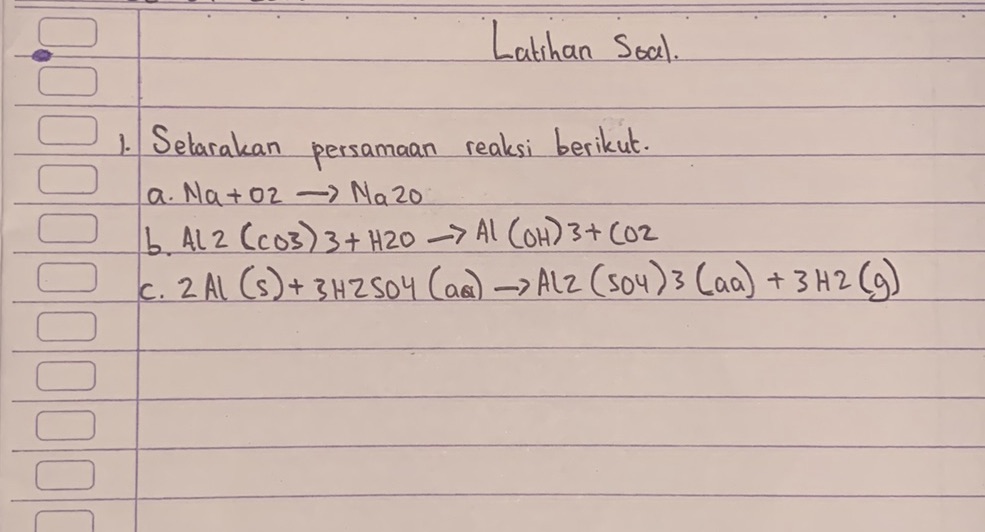 Latihan Soal.
1. Setarakan persamaan reaksi berikut.
a. Na + O2 → Na2O
b. Al2(CO3)3 + H2O → Al(OH)3 + CO2
c. 2Al (s) + 3H2SO4 (aa) → Al2(SO4)3 (aa) + 3H2 (g)